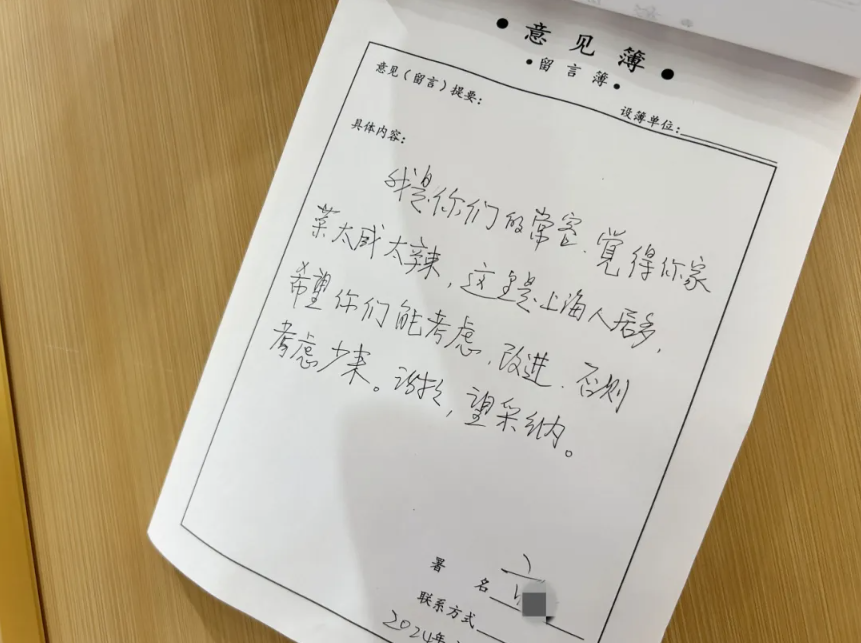 意见簿
留言簿
意见（留言）提要：
设簿单位：
具体内容：
我是你们的常客.觉得你家
菜太咸太辣，这里是上海人居多，
希望你们能考虑.改进.否则
考虑少来。谢谢，望采纳。
署名
联系方式
2024年